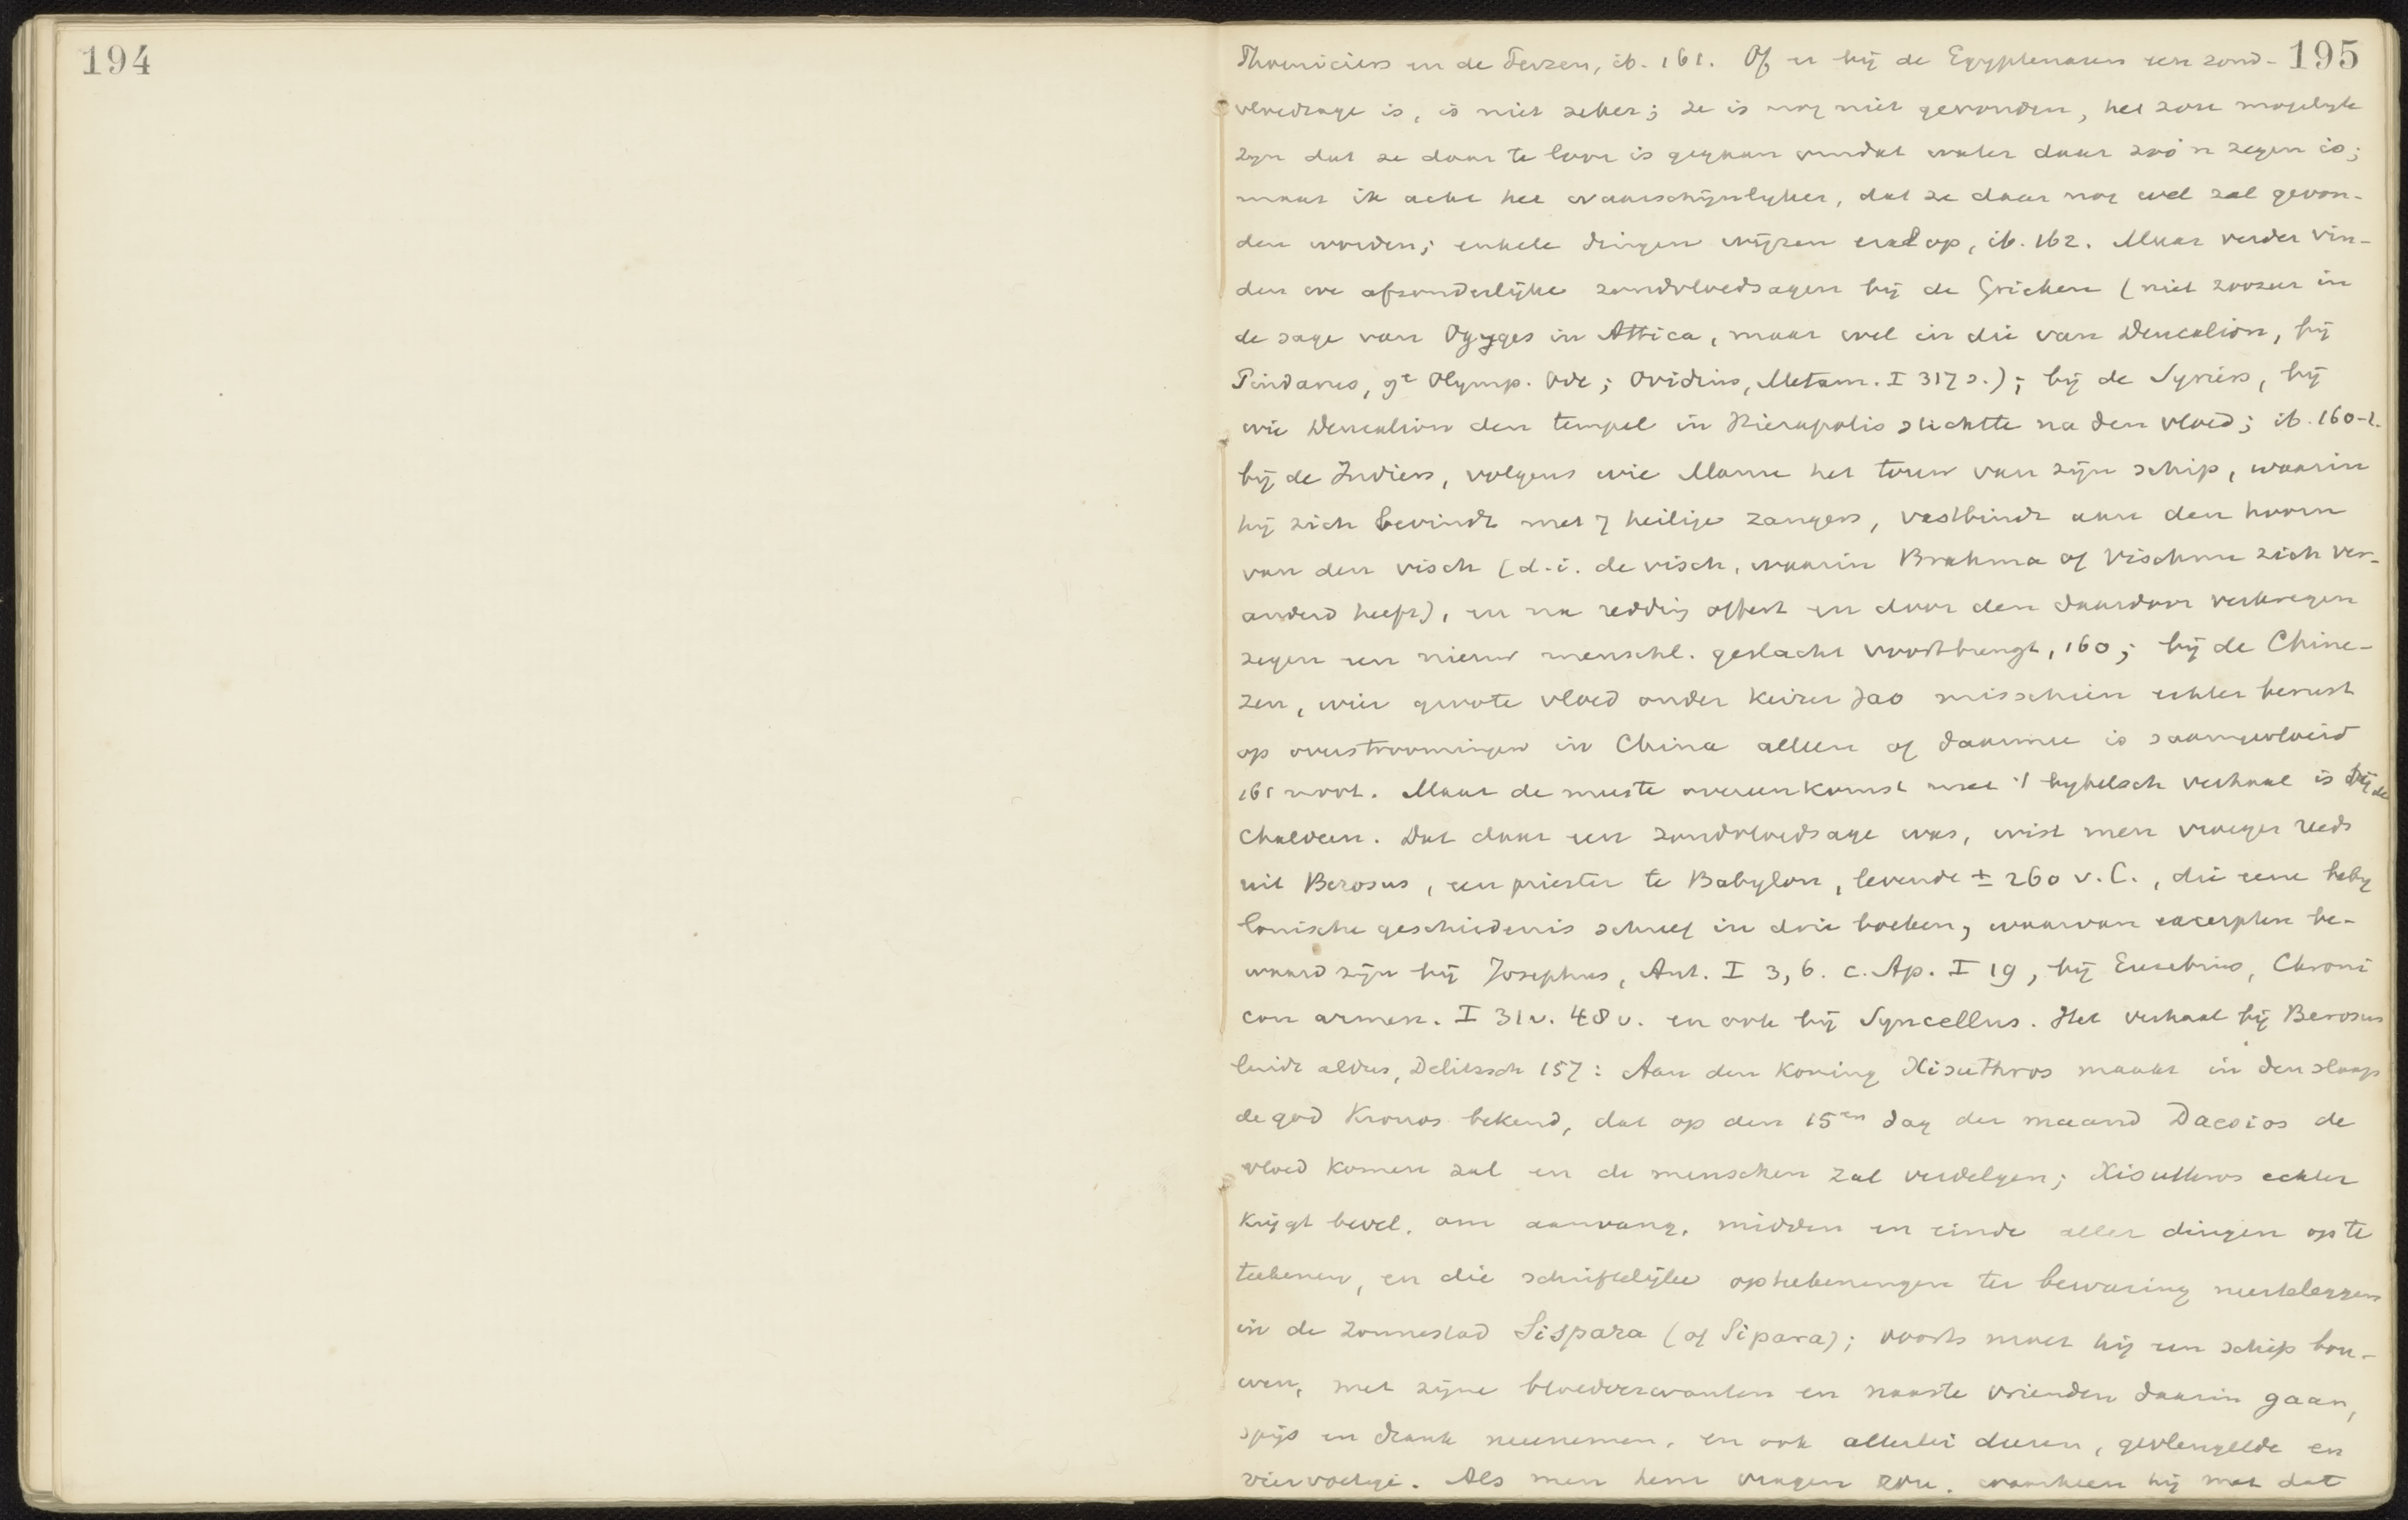 194
195
Phoeniciers en de Perzen, ib. 161. Of er bij de Egyptenaren een zond-
vloedsage is, is niet zeker; ze is nog niet gevonden, het zou mogelyk
zyn dat ze daar te loor is gegaan omdat water daar zoo'n zegen is;
maar ik acht het waarschijnlyker, dat ze daar nog wel zal gevon-
den worden; enkele dingen wijzen erop, ib. 162. Maar verder vin-
den we afzonderlijke zondvloedsagen bij de Grieken (niet zoozeer in
de sage van Ogyges in Attica, maar wel in die van Deucalion, bij
Pindarus, 9e Olymp. Ode; Ovidius, Metam. I 317 s.); bij de Syriers, bij
wie Deucalion den tempel in Hierapolis stichtte na den vloed; ib. 160-1.
bij de Indiers, volgens wie Manu het touw van zijn schip, waarin
hij zich bevindt met 7 heilige zangers, vastbindt aan den hoorn
van den visch (d.i. de visch, waarin Brahma of Vischnu zich ver-
anderd heeft), en na redding offert en door den daardoor verkregen
zegen een nieuw menschl. geslacht voortbrengt, 160; bij de Chine-
zen, wier groote vloed onder keizer Jao misschien echter berust
op overstroomingen in China alleen of daarmee is saamgevloeid
161 noot. Maar de meeste overeenkomst met 't bybelsch verhaal is bij de
Chaldeen. Dat daar een zondvloedsage was, wist men vroeger reeds
uit Berosus, een priester te Babylon, levende ± 260 v. C., die eene baby
lonische geschiedenis schreef in drie boeken, waarvan excerpten be-
waard zijn bij Josephus, Ant. I 3, 6. c. Ap. I 19, bij Eusebius, Chroni
con armen. I 31 v. 48 v. en ook bij Syncellus. Het verhaal bij Berosus
luidt aldus, Delitzsch 157: Aan den Koning Xisuthros maakt in den slaap
de god Kronos bekend, dat op den 15en dag der maand Daesios de
vloed komen zal en de menschen zal verdelgen; Xisuthros echter
krijgt bevel, om aanvang, midden en einde aller dingen op te
teekenen, en die schriftelijke opteekeningen ter bewaring neerteleggen
in de Zonnestad Sispara (of Sipara); voorts moet hij een schip bou-
wen, met zijne bloedverwanten en naaste vrienden daarin gaan,
spijs en drank meenemen, en ook allerlei dieren, gevleugelde en
viervoetige. Als men hem vragen zou, waarheen hij met dat